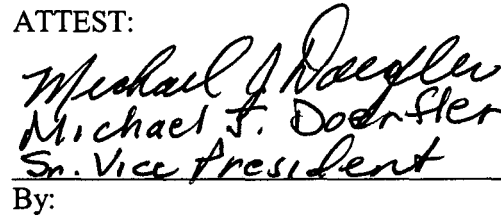 ATTEST:
Michael J Doerfler
Michael J. Doerfler
Sr. Vice President
By: